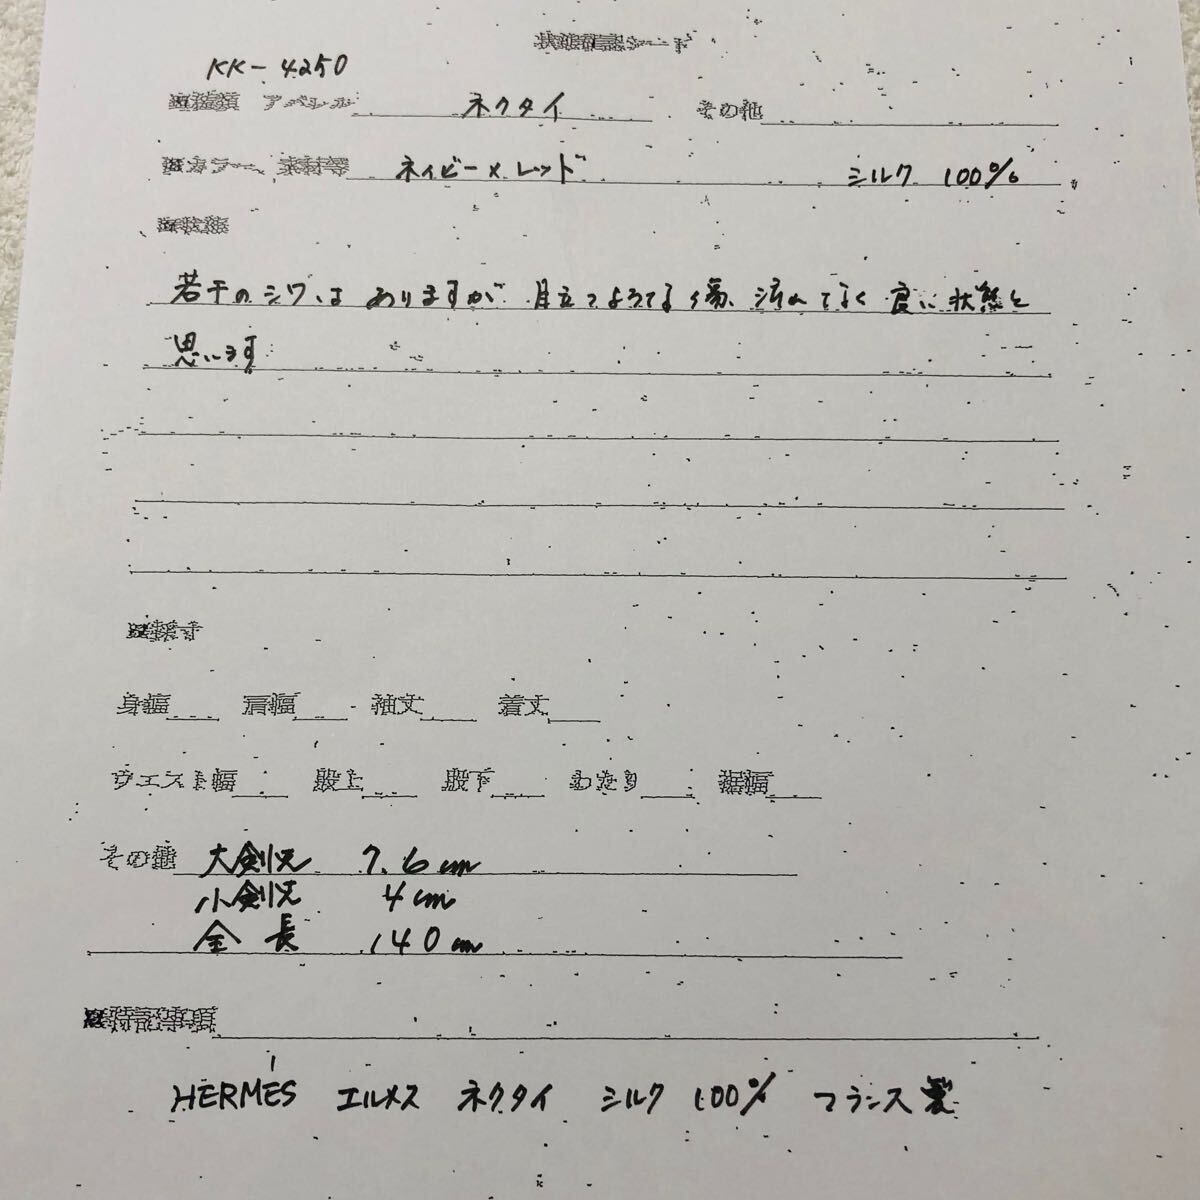 状態確認シート
KK-4250
種類 アパレル ネクタイ その他
カラー、素材等 ネイビー×レッド シルク 100%
状態
若干のシワはありますが 目立つような傷、汚れもなく 良い状態と
思います
採寸
身幅 肩幅 袖丈 着丈
ウエスト幅 股上 股下 わたり 裾幅
その他 大剣先 7.6cm
小剣先 4cm
全長 140cm
特記事項
HERMÉS エルメス ネクタイ シルク 100% フランス製